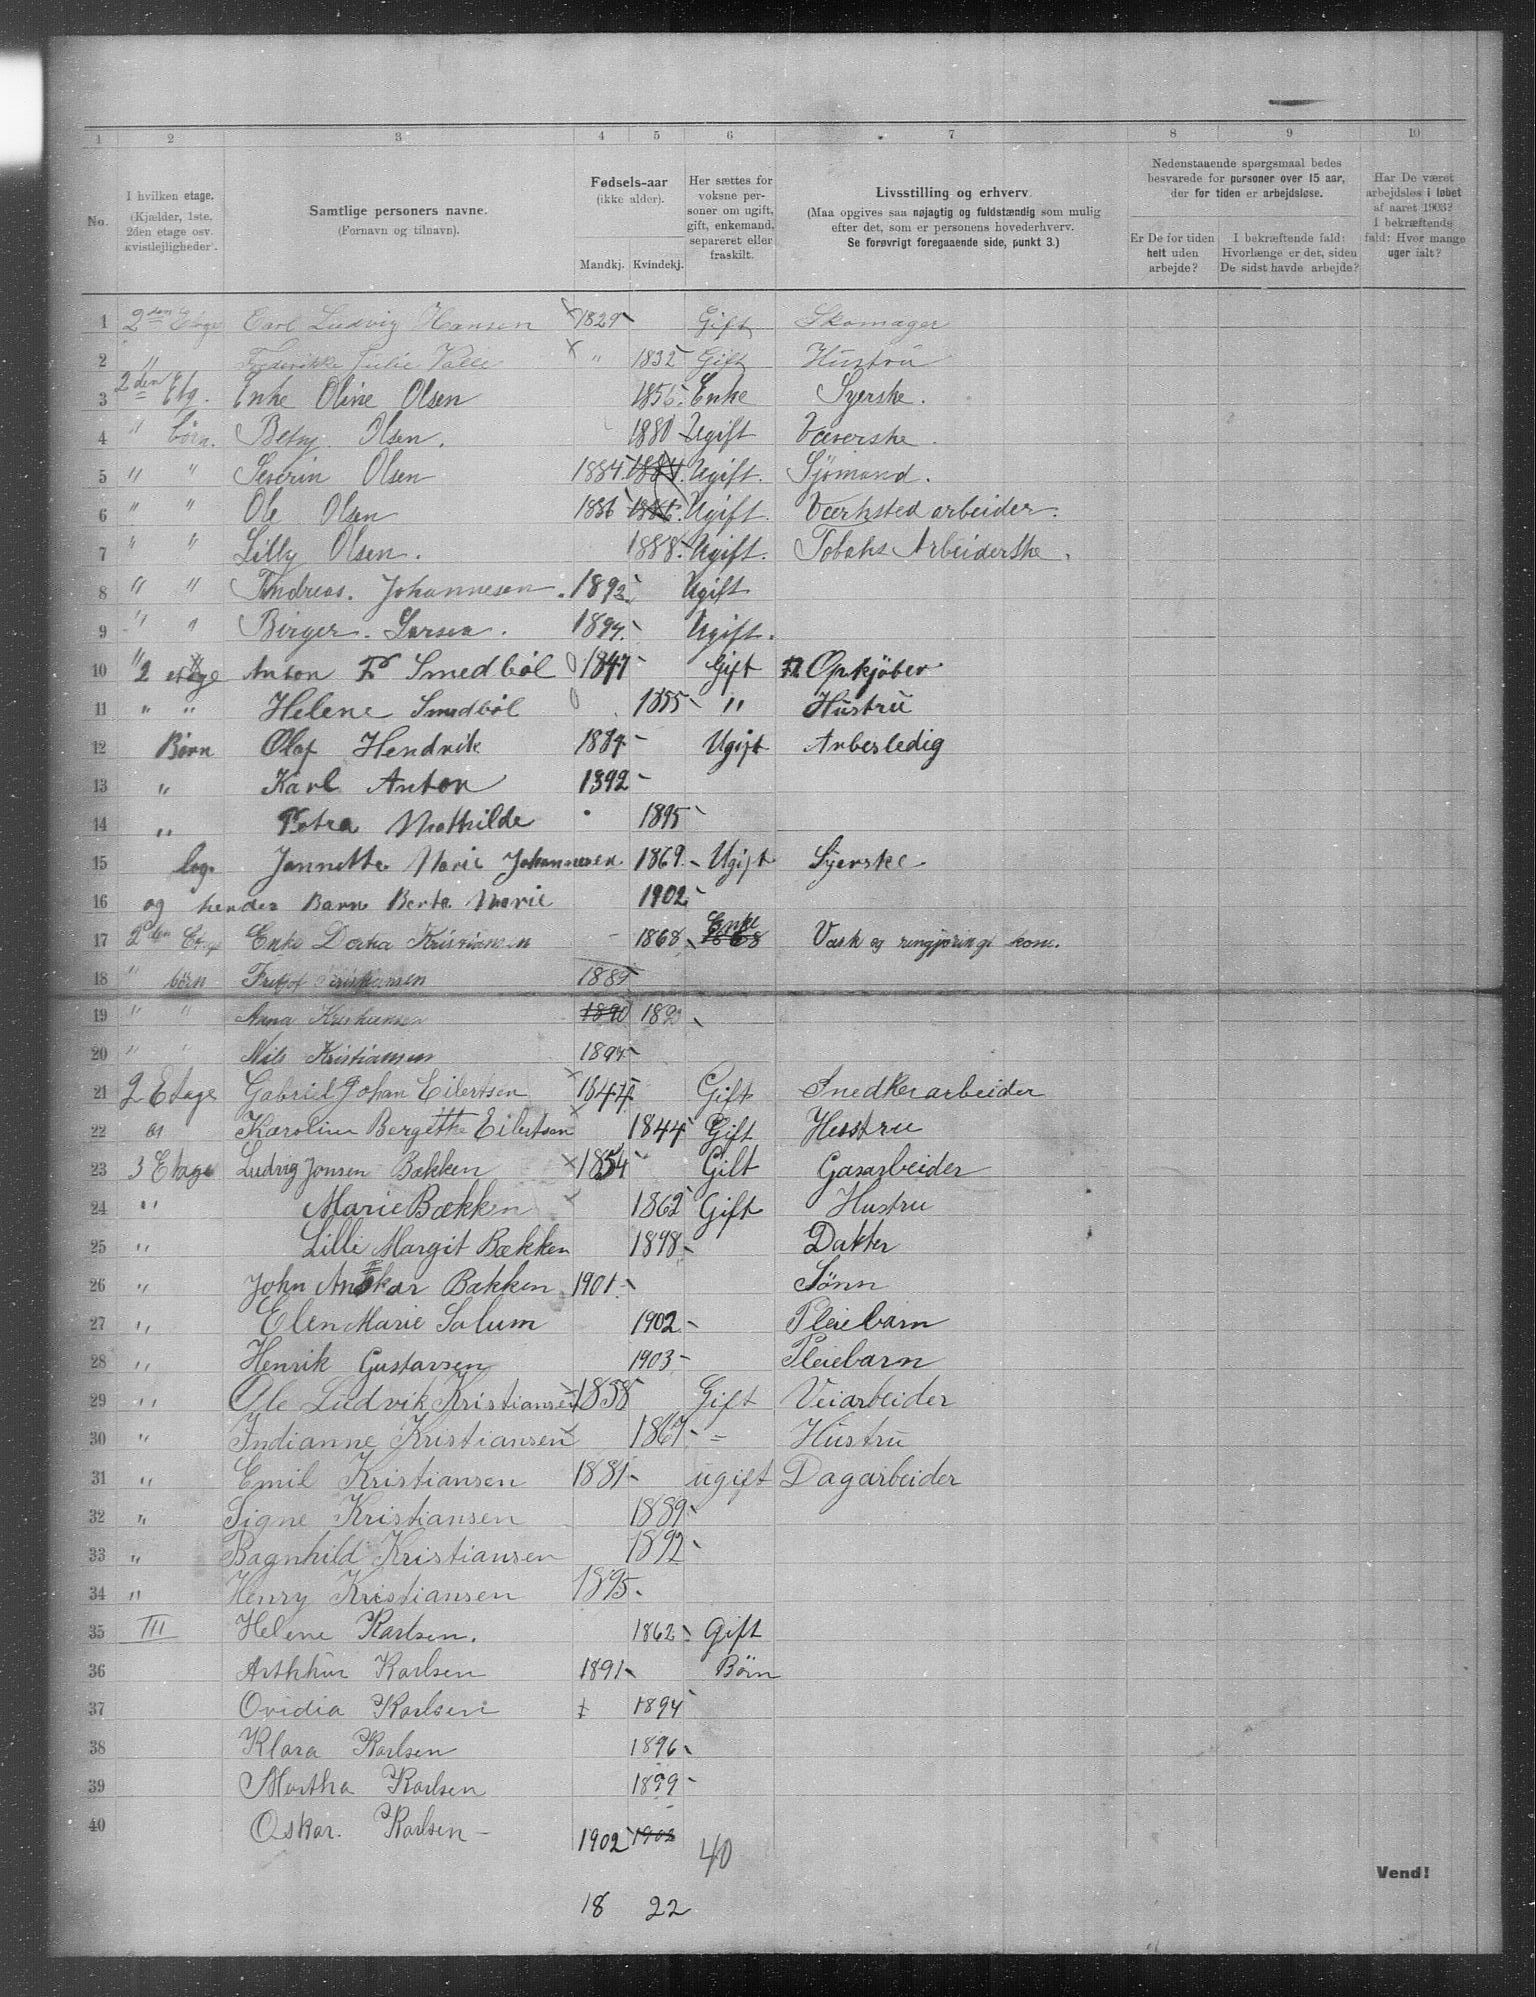 1 2 3 4 5 6 7 8 9 10
No.
I hvilken etage.
(Kjælder, 1ste,
2den etage osv.
kvistlejligheder.
Samtlige personers navne.
(Fornavn og tilnavn).
Fødsels-aar
(ikke alder).
Mandkj. Kvindekj.
Her sættes for
voksne per-
soner om ugift,
gift, enkemand,
separeret eller
fraskilt.
Livsstilling og erhverv.
(Maa opgives saa nøjagtig og fuldstændig som mulig
efter det, som er personens hovederhverv.
Se forøvrigt foregaaende side, punkt 3.)
Nedenstaaende spørgsmaal bedes
besvarede for personer over 15 aar,
der for tiden er arbejdsløse.
Er De for tiden
helt uden
arbejde?
I bekræftende fald:
Hvorlænge er det, siden
De sidst havde arbejde?
Har De været
arbejdsløs i løbet
af aaret 1903?
I bekræftende
fald: Hvor mange
uger ialt?
1 2den Etage Carl Ludvig Hansen 1829 Gift Skomager
2 " Frederikke Julie 1832 Gift Hustru
3 2den Etg. Enke Oline Olsen 1856. Enke Syerske.
4 " børn. Betsy Olsen. 1880 Ugift Væverske.
5 " " Severin Olsen 1884. 1884. Ugift. Sjømand.
6 " " Ole Olsen 1886 1886. Ugift. Værksted arbeider.
7 " " Lilly Olsen. 1888. Ugift. Tobaks Arbeiderske.
8 " " Andreas. Johannesen. 1892. Ugift
9 " " Birger. Larsen. 1894. Ugift.
10 2 etage Anton Fr Smedbøl 1847 Gift Opkjøber
11 " " Helene Smedbøl 1855 " Hustru
12 Børn Olaf Hendrik 1887 Ugift Arbesledig
13 " Karl Anton 1892
14 " Petra Mathilde 1895
15 log. Jannette Marie Johannesen 1869 Ugift Syerske
16 og hendes Barn Berta Marie 1902
17 2den Etage Enke Dorka Kristiansen 1868 1868 Enke Vask og rengjørings kone.
18 " børn Kristiansen 1889
19 " " Anna Kristiansen 1890
20 " " Nils Kristiansen 1894
21 2 Etage Gabriel Johan Eilertsen 1844 Gift Snedkerarbeider
22 Karoline Bergethe Eilertsen 1844 Gift Hustru
23 3 Etage Ludvig Jonsen Bækken 1854 Gift Gasarbeider
24 " Marie Bækken 1862 Gift Hustru
25 " Lilli Margit Bækken 1898 Datter
26 " John Anskar Bækken 1901 Sønn
27 " Elen Marie Solum 1902 Pleiebarn
28 " Henrik Gustavsen 1903 Pleiebarn
29 " Ole Ludvik Kristiansen 1858 Gift Veiarbeider
30 " Indianne Kristiansen 1867 = Hustru
31 " Emil Kristiansen 1881 ugift Dagarbeider
32 " Signe Kristiansen 1889
33 " Ragnhild Kristiansen 1892
34 " Henry Kristiansen 1895.
35 III Helene Karlsen. 1862 Gift
36 Arthhur Karlsen 1891 Børn
37 Ovidia Karlsen 1894
38 Klara Karlsen 1896
39 Martha Karlsen 1899
40 Oskar. Karlsen 1902 1902
40
Vend!
18 22